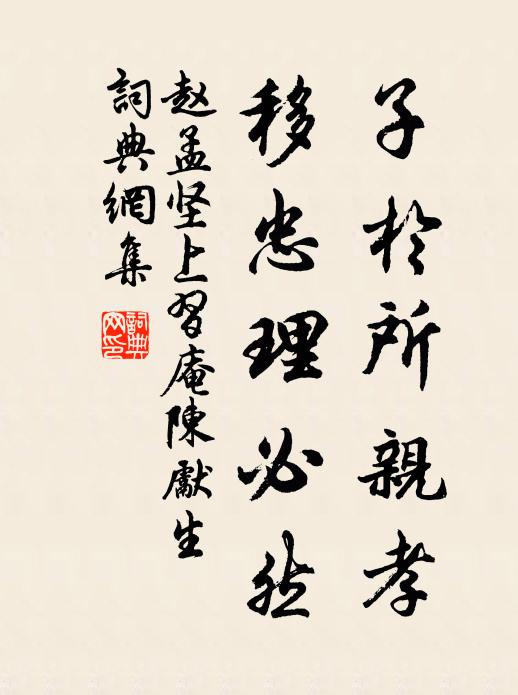 子於所親孝
移忠理必然
赵孟坚上習庵陳獻生
詞典網集
詞典网印